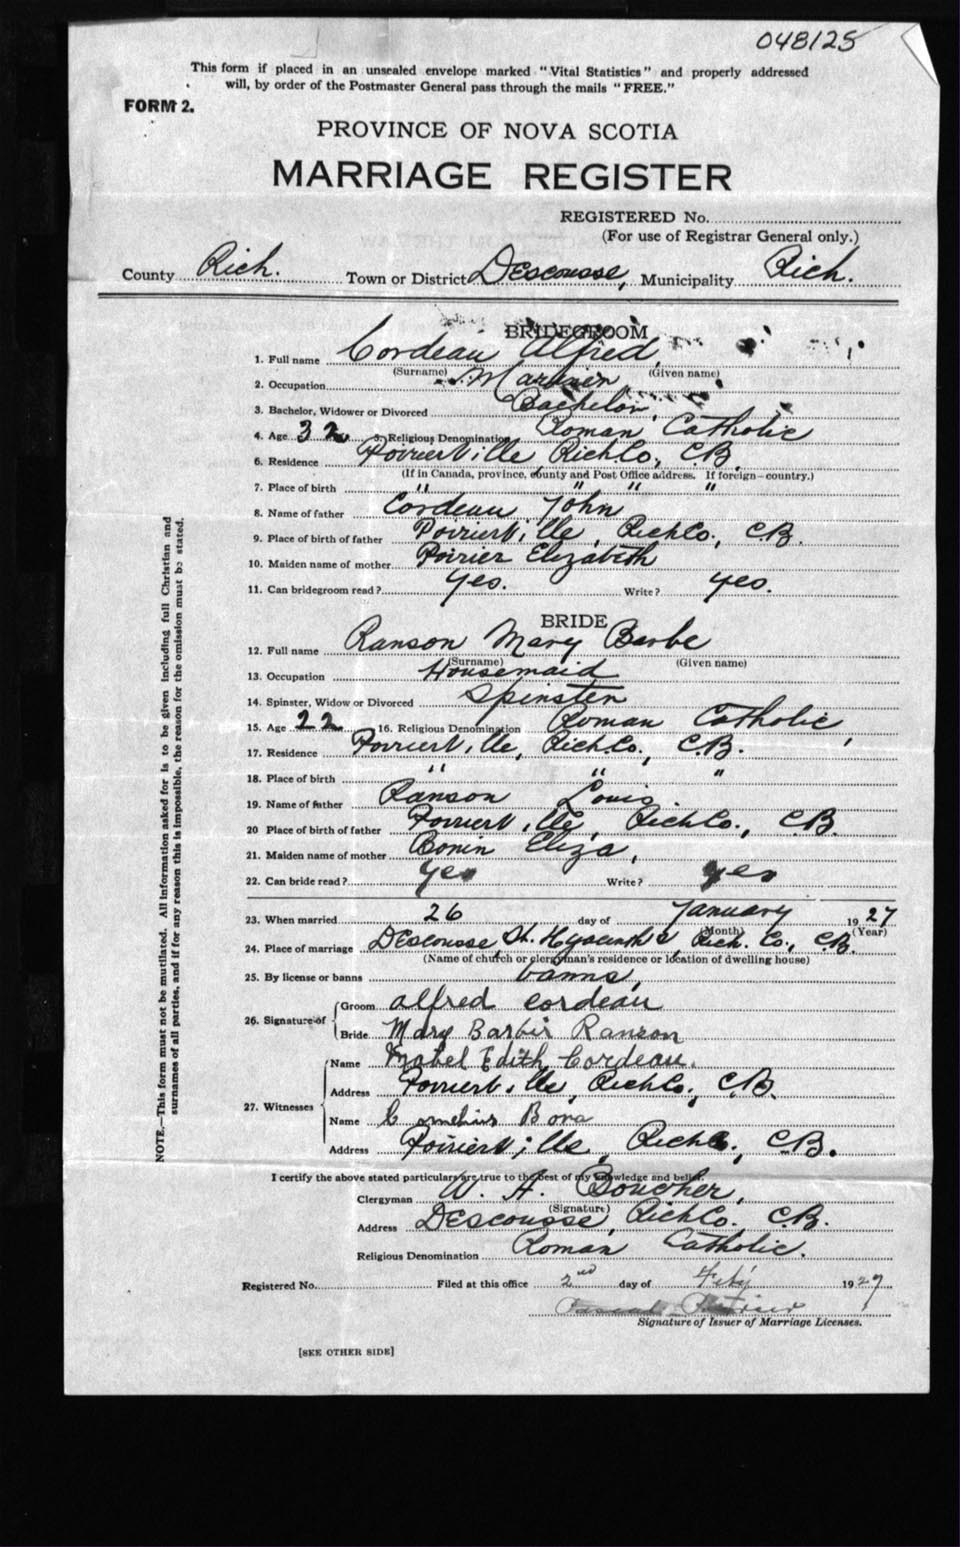 048125
This form if placed in an unsealed envelope marked "Vital Statistics" and properly addressed
will, by order of the Postmaster General pass through the mails "FREE."
FORM 2.
PROVINCE OF NOVA SCOTIA
MARRIAGE REGISTER
REGISTERED No.
(For use of Registrar General only.)
County Rich. Town or District Descousse, Municipality Rich.
BRIDEGROOM
1. Full name Cordeau Alfred,
(Surname) (Given name)
2. Occupation Mariner
3. Bachelor, Widower or Divorced Bachelor,
4. Age 32 5. Religious Denomination Roman Catholic
6. Residence Poirierville Rich Co., C.B.
(If in Canada, province, county and Post Office address. If foreign—country.)
7. Place of birth " " " "
8. Name of father Cordeau John
9. Place of birth of father Poirierville, Rich Co., C.B.
10. Maiden name of mother Poirier Elizabeth
11. Can bridegroom read? Yes. Write? Yes.
BRIDE
12. Full name Ranson Mary Barbe
(Surname) (Given name)
13. Occupation Housemaid
14. Spinster, Widow or Divorced Spinster
15. Age 22 16. Religious Denomination Roman Catholic,
17. Residence Poirierville, Rich Co., C.B.
18. Place of birth " " "
19. Name of father Ranson Louis
20 Place of birth of father Poirierville, Rich Co., C.B.
21. Maiden name of mother Bonin Eliza,
22. Can bride read? Yes Write? Yes
23. When married 26 day of January 1927
(Month) (Year)
24. Place of marriage Descousse, St. Hyacinth's, Rich. Co., C.B.
(Name of church or clergyman's residence or location of dwelling house)
25. By license or banns banns,
26. Signature of Groom alfred cordeau
Bride Mary Barbir Ranson
27. Witnesses Name Mabel Edith Cordeau.
Address Poirierville, Rich Co., C.B.
Name Bona
Address Poirierville, Rich Co., C.B.
I certify the above stated particulars are true to the best of my knowledge and belief.
Clergyman W. A. Boucher,
(Signature)
Address Descousse, Rich Co., C.B.
Religious Denomination Roman Catholic.
Registered No. Filed at this office 2nd day of Feby 1927
Signature of Issuer of Marriage Licenses.
[SEE OTHER SIDE]
NOTE.—This form must not be mutilated. All information asked for is to be given including full Christian and
surnames of all parties, and if for any reason this is impossible, the reason for the omission must be stated.